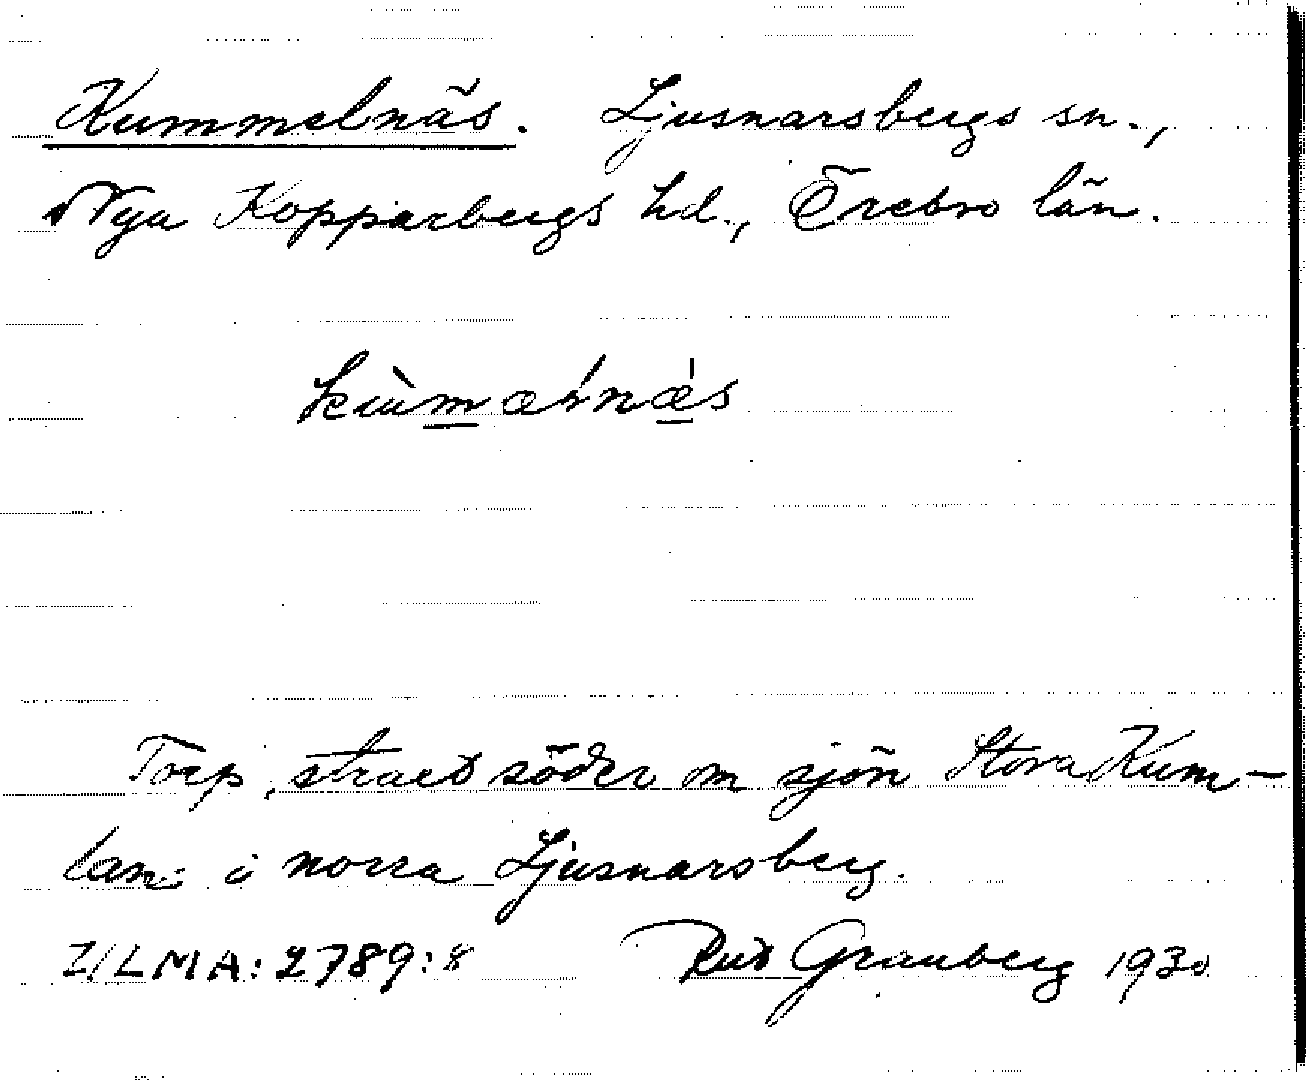 Kummelnäs. Ljusnarsbergs sn.,
Nya Kopparbergs hd., Örebro län.
Torp, strax söder om sjön Stora Kum-
lan i norra Ljusnarsberg.
LMA: 2789:8 Rut Granberg 1930